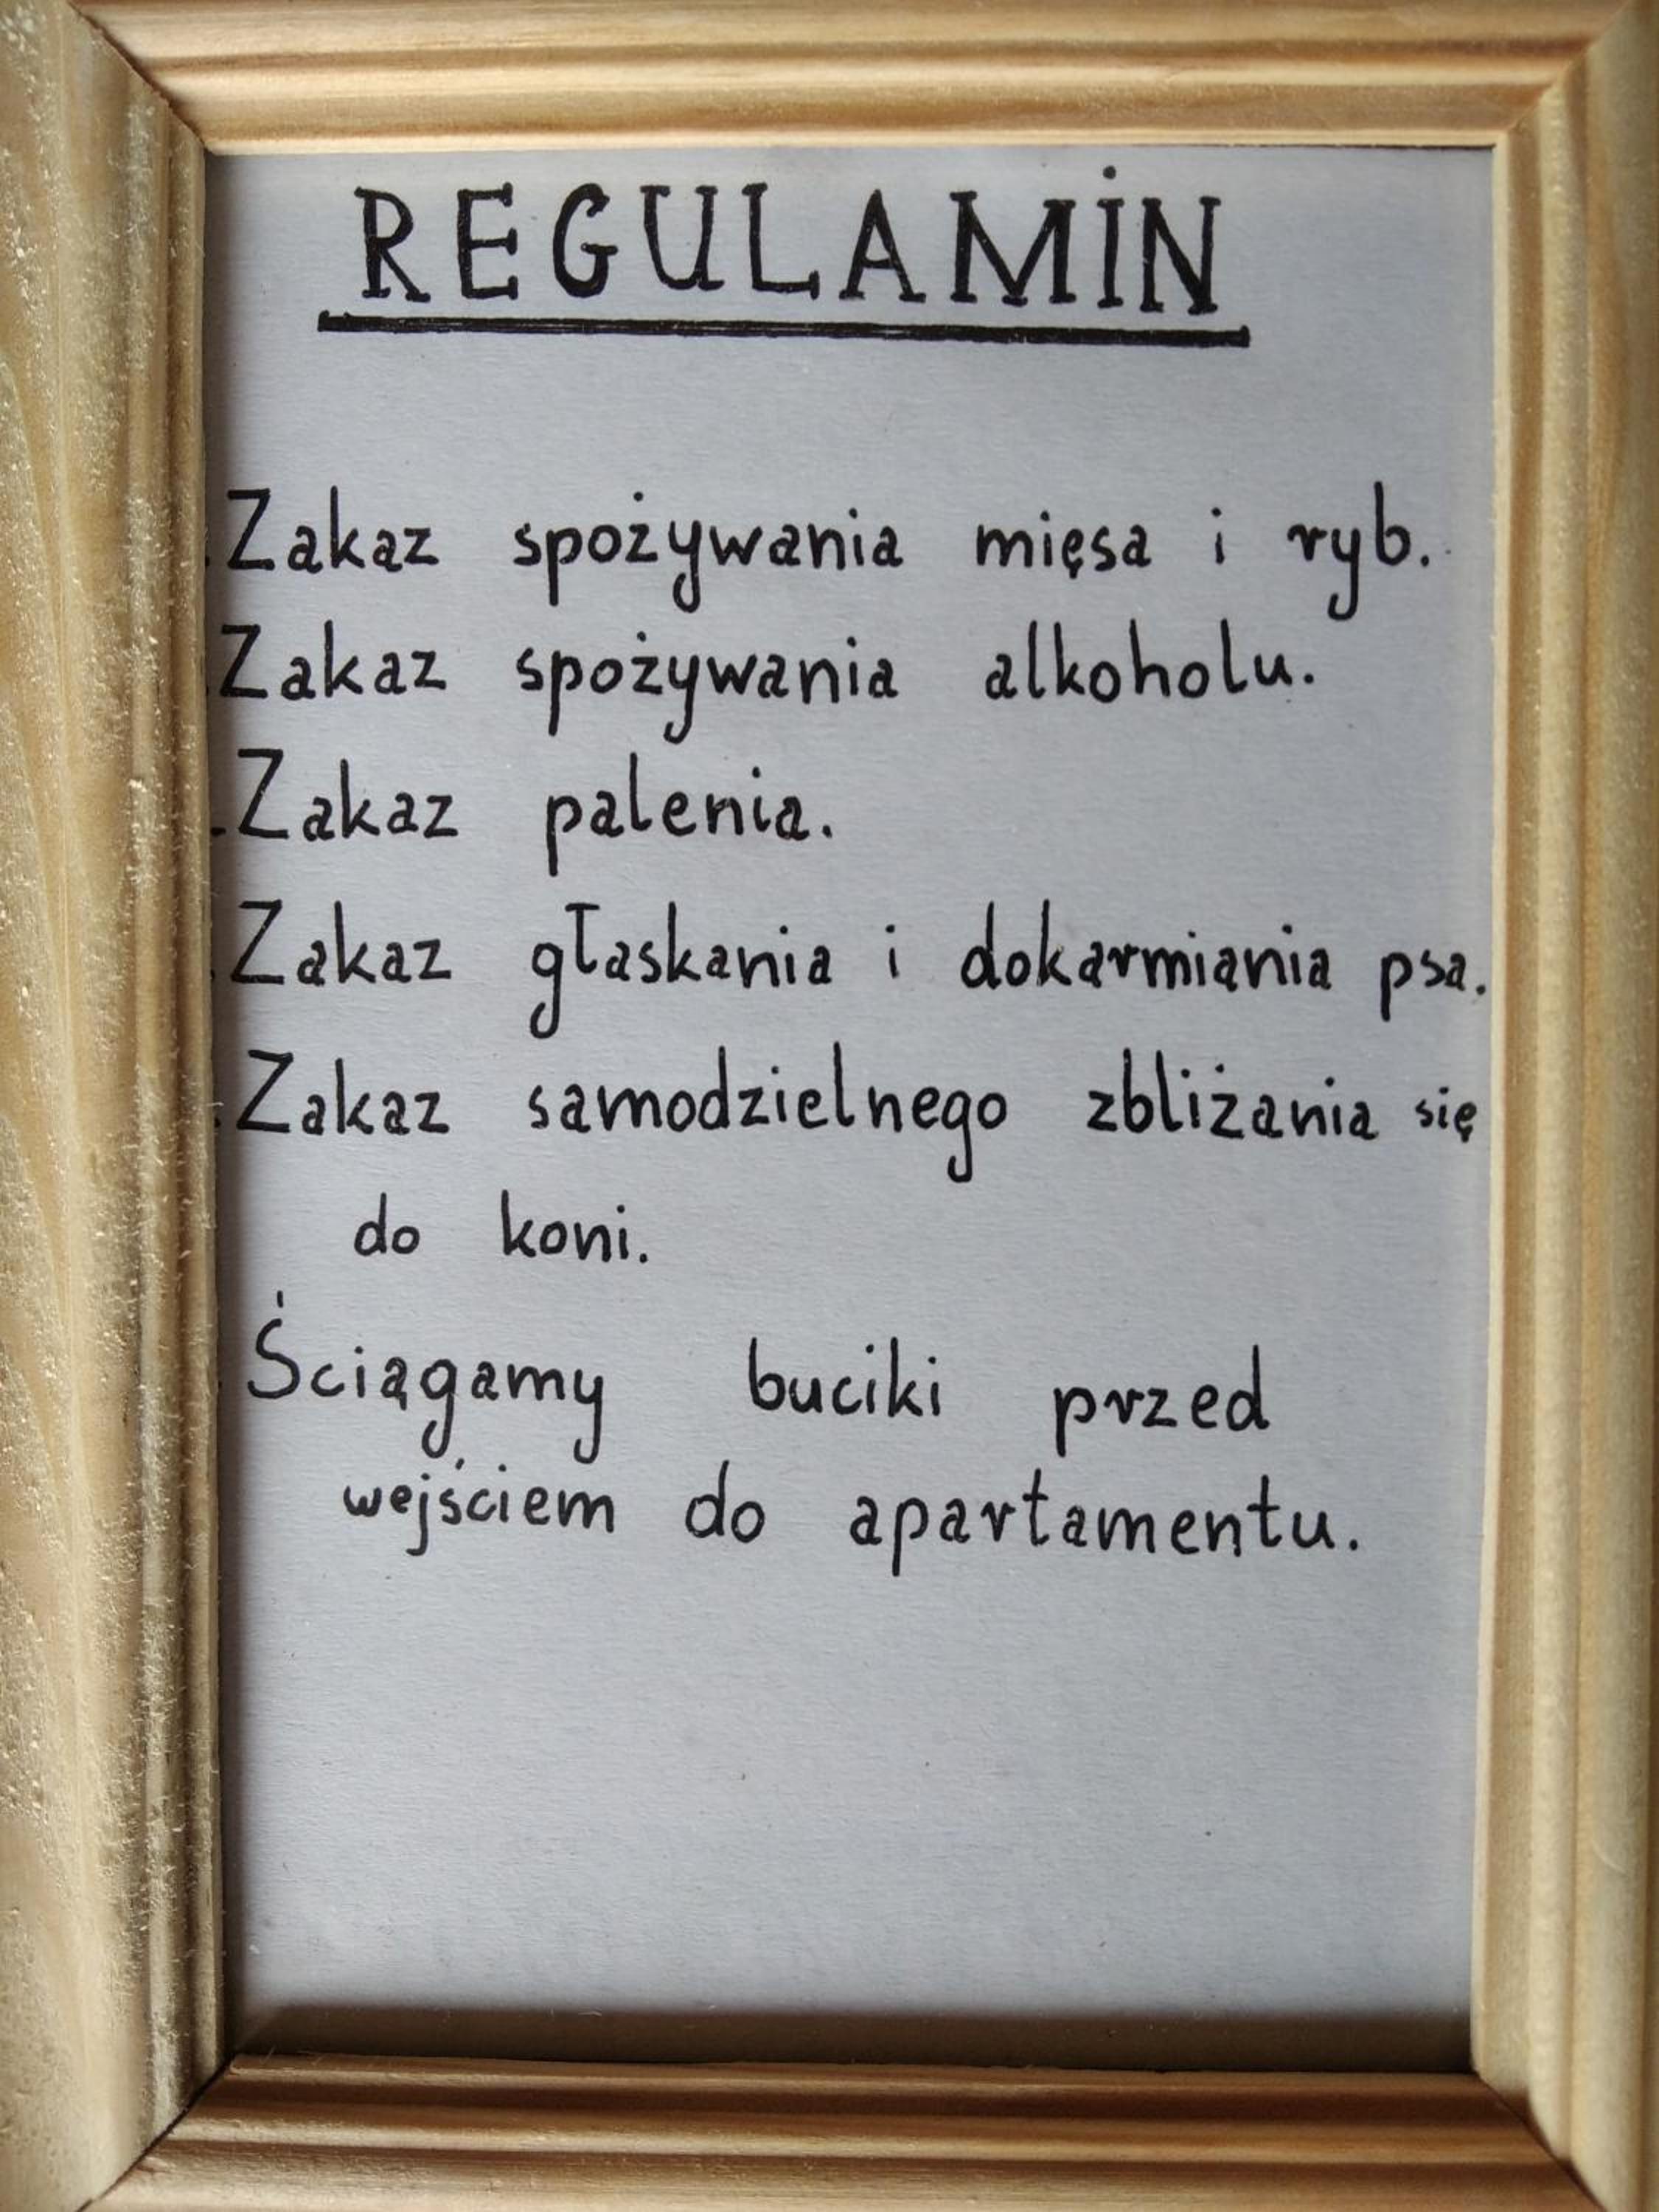 REGULAMIN
Zakaz spożywania mięsa i ryb.
Zakaz spożywania alkoholu.
Zakaz palenia.
Zakaz głaskania i dokarmiania psa.
Zakaz samodzielnego zbliżania się
do koni.
Ściągamy buciki przed
wejściem do apartamentu.